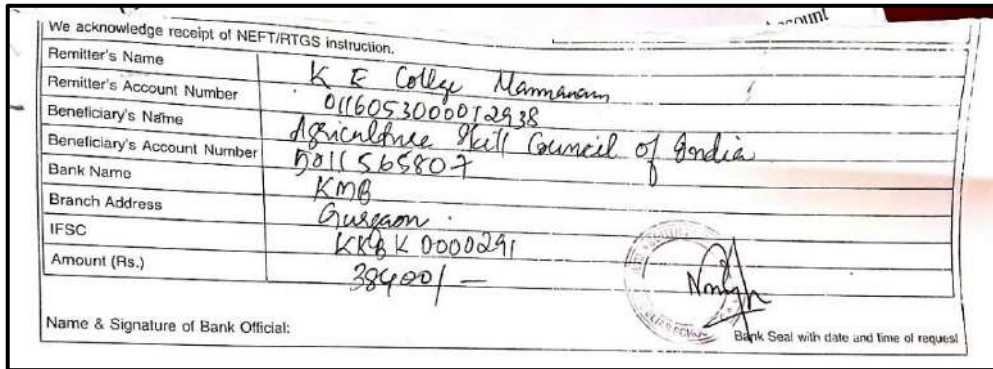 We acknowledge receipt of NEFT/RTGS instruction.
Remitter's Name K E College Mannanam
Remitter's Account Number 0116053000012938
Beneficiary's Name Agriculture Skill Council of India
Beneficiary's Account Number 5011565807
Bank Name KMB
Branch Address Gurgaon
IFSC KKBK0000291
Amount (Rs.) 38400/-
Name & Signature of Bank Official:
Bank Seal with date and time of request